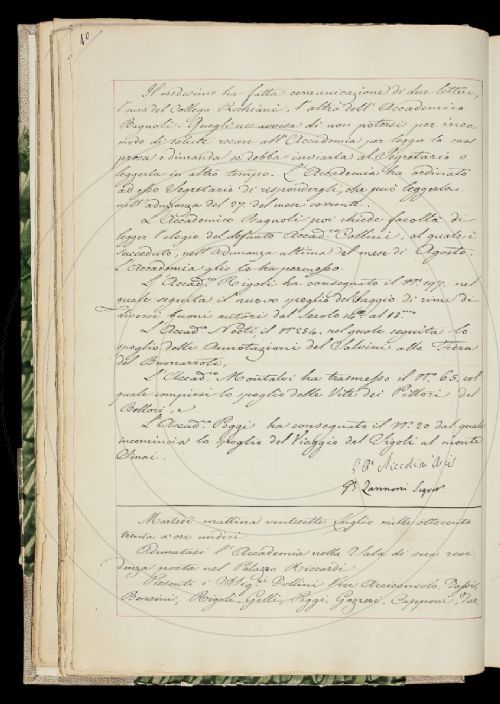 40
Il medesimo ha fatta comunicazione di due lettere,
l'una del Collega Pacchiani, l'altra dell'Accademico
Bagnoli. Quegli ne avvisa di non potersi per inco
modo di salute recare all'Accademia per legger la sua
prosa e dimanda se debba inviarla al Segretario o
leggerla in altro tempo. L'Accademia ha ordinato
ad esso Segretario di rispondergli, che può leggerla
nell'adunanza del 27. del mese corrente.
L'Accademico Bagnoli poi chiede facoltà di
legger l'elogio del defunto Accad.co Collini, al quale è
succeduto, nell'adunanza ultima del mese di Agosto.
L'Accademia glie lo ha permesso
L'Accad.co Rigoli ha consegnato il N.o 197. nel
quale seguita il nuovo spoglio del Saggio di rime di
diversi buoni autori dal Secolo 14.o al 18.mo
L'Accad.o Nesti il N.o 234. nel quale seguita lo
spoglio delle Annotazioni del Salvini alla Fiera
del Buonarroti.
L'Accad.co Montalvi ha trasmesso il N.o 63. col
quale compiesi lo spoglio delle Vite dei Pittori del
Bellori, e
L'Accad.o Poggi ha consegnato il N.o 20 dal quale
incomincia lo spoglio del Viaggio del Sigoli al monte
Sinai.
G. Ba. Niccolini
G. B. Zannoni Segret.
Martedì mattina ventisette Luglio mille ottocento
trenta a ore undici
Adunatasi l'Accademia nella Sala di sua resi
denza posta nel Palazzo Riccardi
Presenti i Sigg.ri Vice Arciconsolo,
Bencini, Rigoli, Gelli, Poggi, Gazzeri, Capponi,